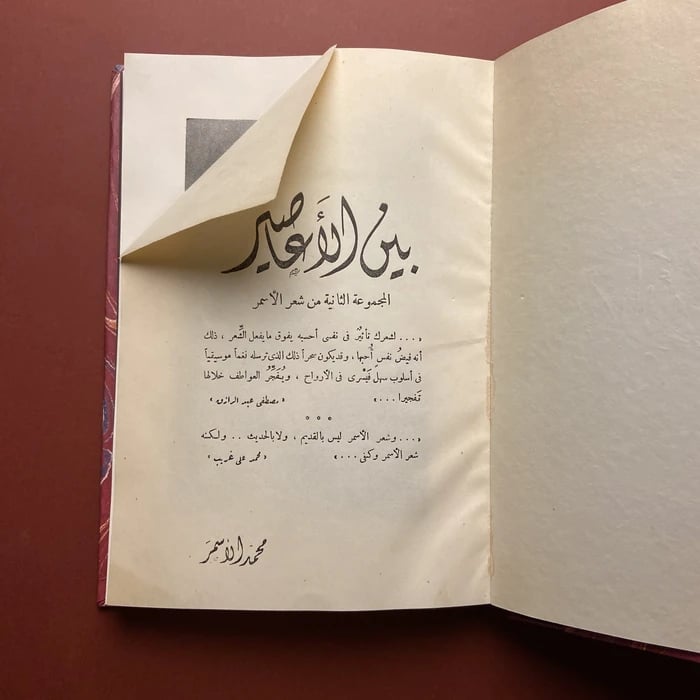 بين الأعاصير
المجموعة الثانية من شعر الأسمر
«... لشعرك تأثيرٌ فى نفسى أحسبه يفوق ما يفعل الشِّعر ، ذلك
أنه فيضُ نفس أُحبها ، وقد يكون سحراً ذلك الذى ترسله نغماً موسيقياً
فى أسلوب سهل فَيَسْرى فى الأرواح ، ويُفَجِّرُ العواطف خلالها
تفجيرا ...» « مصطفى عبد الرازق »
«... وشعر الأسمر ليس بالقديم ، ولا بالحديث .. ولكنه
شعر الأسمر وكفى ...» « محمد على غريب »
محمد الأسمر